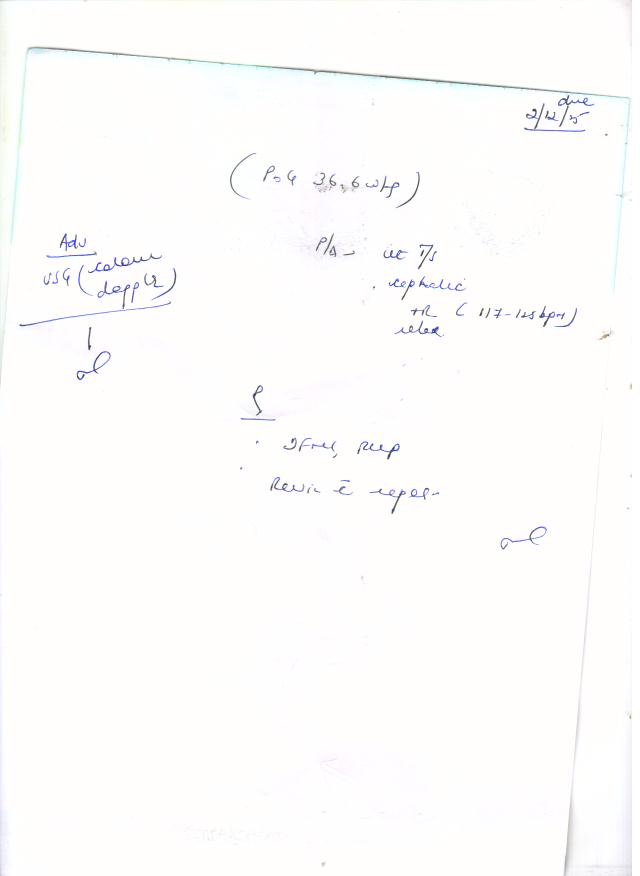 due
2/12/25
(POG 36.6 wks)
Adv
USG (colour
doppler)
P/A - ut T/s
. cephalic
FHR (117-125 bpm)
relax
. DFMC,
. Review c̄ report